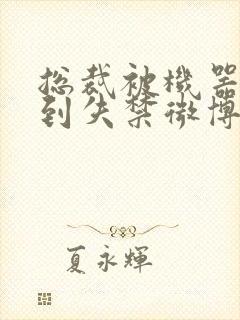 总裁被機器
到失禁微博
夏永輝